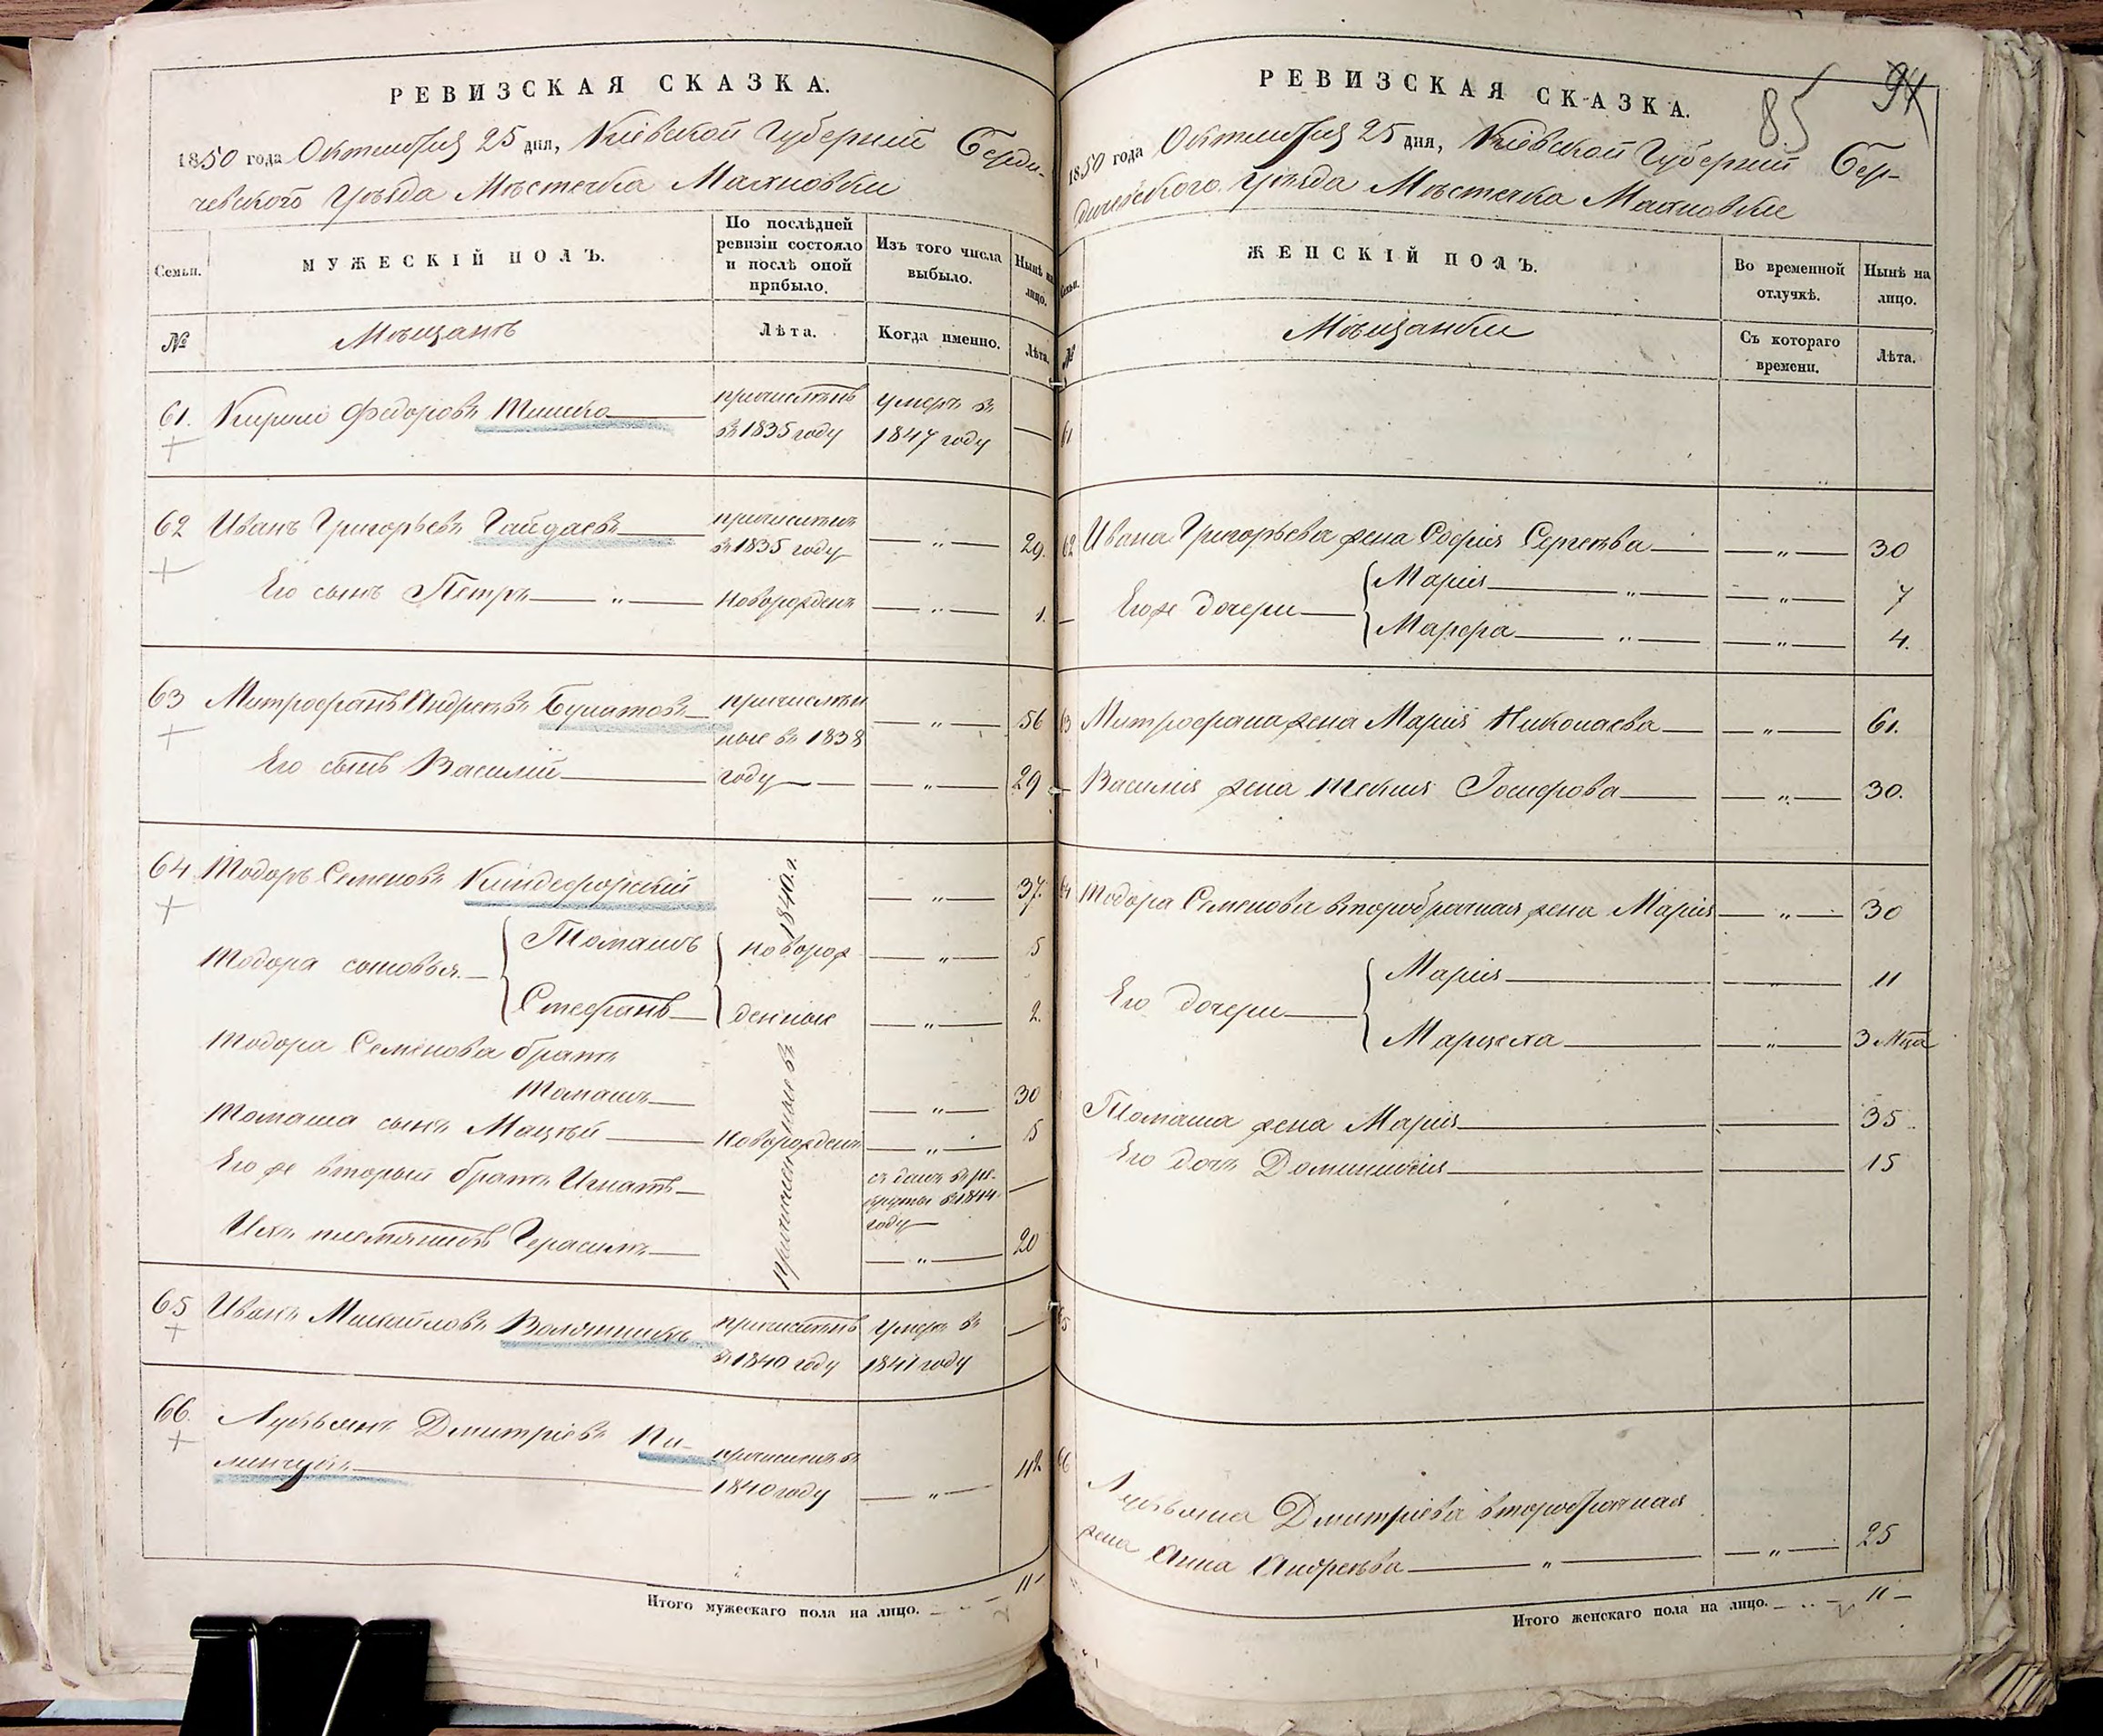 РЕВИЗСКАЯ СКАЗКА.
1850 года Октября 25 дня, Кіевской Губерніи Берди-
чевского Уѣзда Мѣстечка Махновки
Семьи.
МУЖЕСКІЙ ПОЛЪ.
По послѣдней
ревизіи состояло
и послѣ оной
прибыло.
Изъ того числа
выбыло.
Нынѣ на
лицо.
№
Мѣщанъ
Лѣта.
Когда именно.
Лѣта.
61. Кирило Федоровъ Тишко причисленъ умеръ въ
въ 1835 году 1847 году —
62 Иванъ Григорьевъ Гайдаевъ причисленъ
въ 1835 году — „ — 29.
Его сынъ Петръ — „ — новорожденъ — „ — 1.
63 Митрофанъ Андреевъ Булатовъ причислен
ные въ 1838 — „ — 56
Его сынъ Василій году — — „ — 29
64 Тодоръ Семеновъ Киндефорскій — „ — 37.
причисленные въ 1840. г.
Тодора сыновья Томашъ новорож — „ — 5
Стефанъ денные — „ — 2.
Тодора Семенова братъ
Томашъ — „ — 30
Томаша сынъ Мацѣй новорожденъ — „ — 5
Его же вторый братъ Игнатъ сданъ въ ре-
круты въ 1844
году —
Ихъ племянникъ Герасимъ — „ — 20
65 Иванъ Михайловъ Волянникъ причисленъ умеръ въ
въ 1840 году 1841 году —
66. Лукьянъ Дмитріевъ Пи-
линчукъ причисленъ въ
1840 году — „ — 42
Итого мужескаго пола на лицо. — „ — 11 —
РЕВИЗСКАЯ СКАЗКА.
85 94
1850 года Октября 25 дня, Кіевской Губерніи Бер-
дичевского Уѣзда Мѣстечка Махновки
Семьи.
ЖЕНСКІЙ ПОЛЪ.
Во временной
отлучкѣ.
Нынѣ на
лицо.
№
Мѣщанки
Съ котораго
времени.
Лѣта.
61
62 Ивана Григорьева жена Софія Сергеева — „ — 30
Его же дочери Марія — „ — — „ — 7
Марфа — „ — — „ — 4.
63 Митрофана жена Марія Николаева — „ — 61.
Василія жена Текля Іосифова — „ — 30.
64 Тодора Семенова второбрачная жена Марія — „ — 30
Его дочери Марія — „ — 11
Марцеха — „ — 3 мца
Томаша жена Марія — 35.
Его дочь Доминикія — 15
65
66
Лукьяна Дмитріева второбрачная
жена Анна Андреева — „ — — „ — 25
Итого женскаго пола на лицо. — „ — 11 —